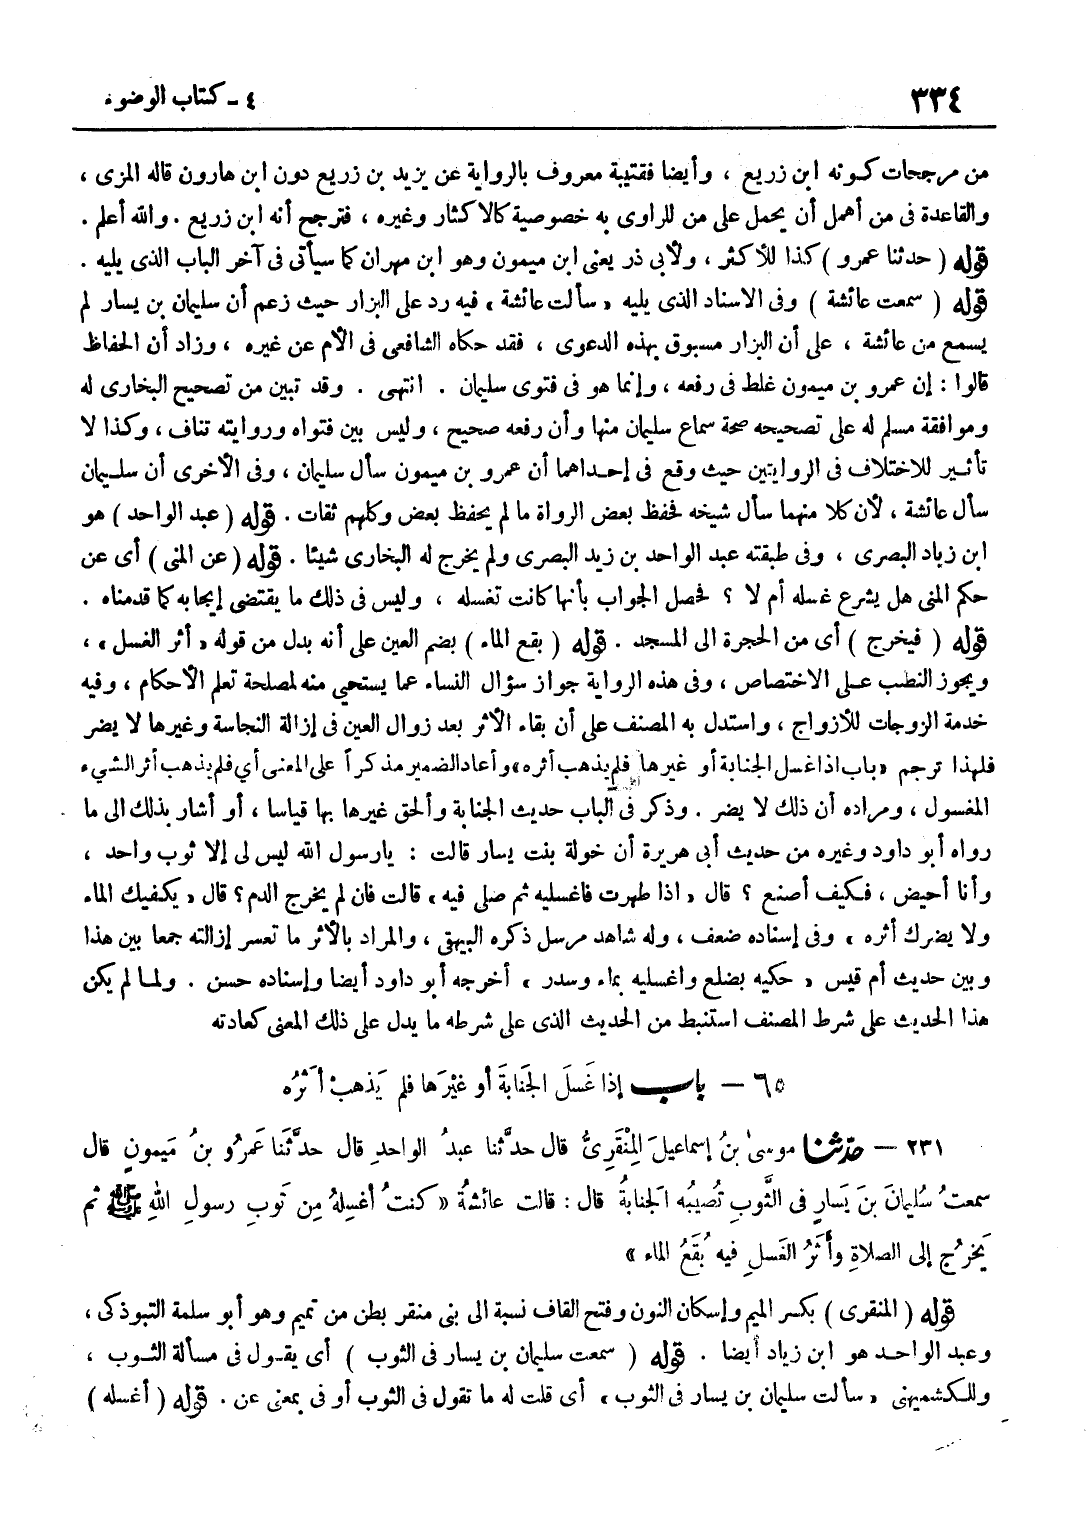 ٣٣٤
٤ - كتاب الوضوء
من مرجحات كونه ابن زريع ، وأيضا فقتيبة معروف بالرواية عن يزيد بن زريع دون ابن هارون قاله المزى ،
والقاعدة فى من أهمل أن يحمل على من للراوى به خصوصية كالاكثار وغيره ، فترجح أنه ابن زريع . والله أعلم .
قوله ( حدثنا عمرو ) كذا للأكثر ، ولأبى ذر يعنى ابن ميمون وهو ابن مهران كما سيأتى فى آخر الباب الذى يليه .
قوله ( سمعت عائشة ) وفى الاسناد الذى يليه « سألت عائشة » فيه رد على البزار حيث زعم أن سليمان بن يسار لم
يسمع من عائشة ، على أن البزار مسبوق بهذه الدعوى ، فقد حكاه الشافعى فى الأم عن غيره ، وزاد أن الحفاظ
قالوا : إن عمرو بن ميمون غلط فى رفعه ، وإنما هو فى فتوى سليمان . انتهى . وقد تبين من تصحيح البخارى له
وموافقة مسلم له على تصحيحه صحة سماع سليمان منها وأن رفعه صحيح ، وليس بين فتواه وروايته تناف ، وكذا لا
تأثير للاختلاف فى الروايتين حيث وقع فى إحداهما أن عمرو بن ميمون سأل سليمان ، وفى الأخرى أن سليمان
سأل عائشة ، لأن كلا منهما سأل شيخه فحفظ بعض الرواة ما لم يحفظ بعض وكلهم ثقات . قوله ( عبد الواحد ) هو
ابن زياد البصرى ، وفى طبقته عبد الواحد بن زيد البصرى ولم يخرج له البخارى شيئا . قوله ( عن المنى ) أى عن
حكم المنى هل يشرع غسله أم لا ؟ فحصل الجواب بأنها كانت تغسله ، وليس فى ذلك ما يقتضى إيجابه كما قدمناه .
قوله ( فيخرج ) أى من الحجرة الى المسجد . قوله ( بقع الماء ) بضم العين على أنه بدل من قوله « أثر الغسل » ،
ويجوز النصب على الاختصاص ، وفى هذه الرواية جواز سؤال النساء عما يستحيى منه لمصلحة تعلم الأحكام ، وفيه
خدمة الزوجات للأزواج ، واستدل به المصنف على أن بقاء الأثر بعد زوال العين فى إزالة النجاسة وغيرها لا يضر
فلهذا ترجم « باب اذا غسل الجنابة أو غيرها فلم يذهب أثره » وأعاد الضمير مذكراً على المعنى أي فلم يذهب أثر الشيء
المغسول ، ومراده أن ذلك لا يضر . وذكر فى الباب حديث الجنابة وألحق غيرها بها قياسا ، أو أشار بذلك الى ما
رواه أبو داود وغيره من حديث أبى هريرة أن خولة بنت يسار قالت : يارسول الله ليس لى إلا ثوب واحد ،
وأنا أحيض ، فكيف أصنع ؟ قال « اذا طهرت فاغسليه ثم صلى فيه » قالت فان لم يخرج الدم ؟ قال « يكفيك الماء
ولا يضرك أثره » وفى إسناده ضعف ، وله شاهد مرسل ذكره البيهقى ، والمراد بالأثر ما تعسر إزالته جمعا بين هذا
وبين حديث أم قيس « حكيه بضلع واغسليه بماء وسدر » أخرجه أبو داود أيضا وإسناده حسن . ولما لم يكن
هذا الحديث على شرط المصنف استنبط من الحديث الذى على شرطه ما يدل على ذلك المعنى كعادته
٦٥ - باب إذا غَسلَ الجَنابةَ أو غيْرَها فلم يَذهبْ أثَرُه
٢٣١ - حدّثنا موسىٰ بنُ إسماعيلَ المِنْقَرِىُّ قال حدَّثنا عبدُ الواحدِ قال حدَّثَنا عَمرُو بنُ مَيمونٍ قال
سمعتُ سُليمانَ بنَ يَسارٍ فى الثَّوبِ تُصيبُه الجنابةُ قال : قالت عائشةُ « كنتُ أغسِلهُ مِن ثَوبِ رسولِ اللهِ ﷺ ثم
يَخرُج إلى الصلاةِ وأَثَرُ الغَسلِ فيه بُقَعُ الماء »
قوله ( المنقرى ) بكسر الميم وإسكان النون وفتح القاف نسبة الى بنى منقر بطن من تميم وهو أبو سلمة التبوذكى ،
وعبد الواحد هو ابن زياد أيضا . قوله ( سمعت سليمان بن يسار فى الثوب ) أى يقول فى مسألة الثوب ،
وللكشميهنى « سألت سليمان بن يسار فى الثوب » أى قلت له ما تقول فى الثوب أو فى بمعنى عن . قوله ( أغسله )